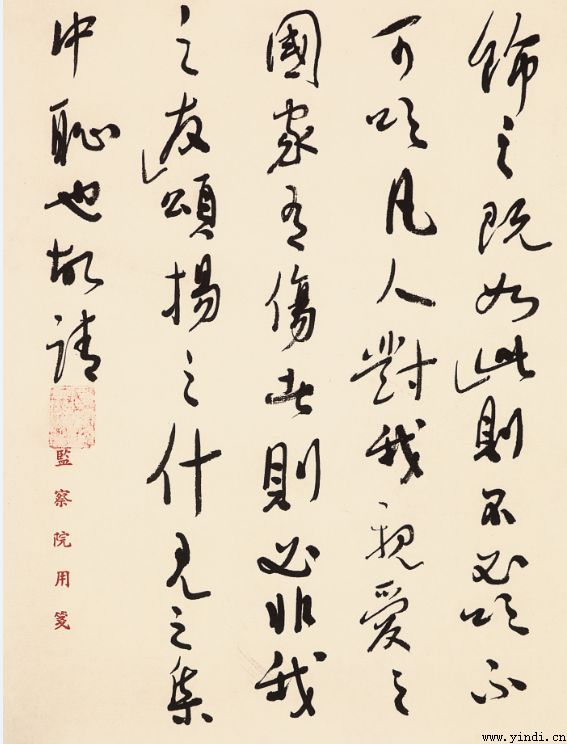 飾之既如此則不必吟不
可吟凡人對我親愛之
國家有傷者則必非我
之友頌揚之什見之集
中恥也故請
監察院用箋
www.yindi.cn